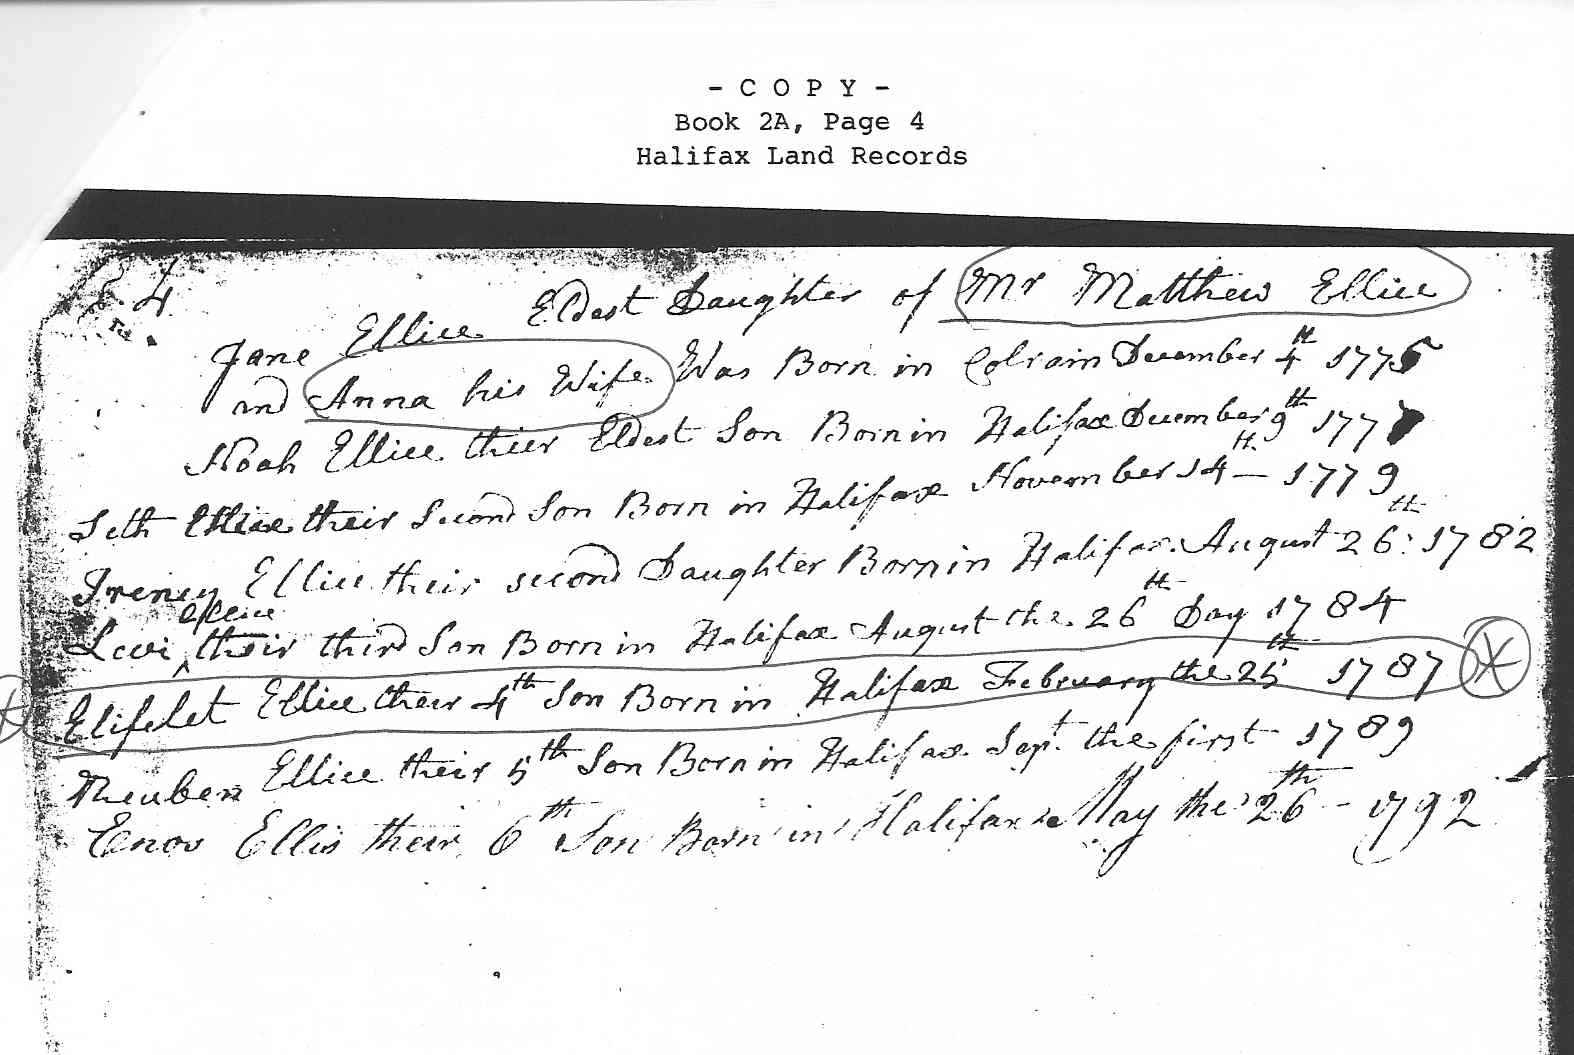 - C O P Y -
Book 2A, Page 4
Halifax Land Records
4
Jane Ellice Eldest Daughter of Mr Matthew Ellice
and Anna his Wife Was Born in Colrain December 4th 1775
Noah Ellice thier Eldest Son Born in Halifax December 9th 1777
Seth Ellice their Second Son Born in Halifax November 14th — 1779
Ireney Ellice their second Daughter Born in Halifax August 26th 1782
Levi ^ Ellice their third Son Born in Halifax August the 26th Day 1784
Elifelet Ellice their 4th Son Born in Halifax February the 25th 1787
Reuben Ellice their 5th Son Born in Halifax Sept. the first 1789
Enos Ellis their 6th Son Born in Halifax May the 26th - 1792